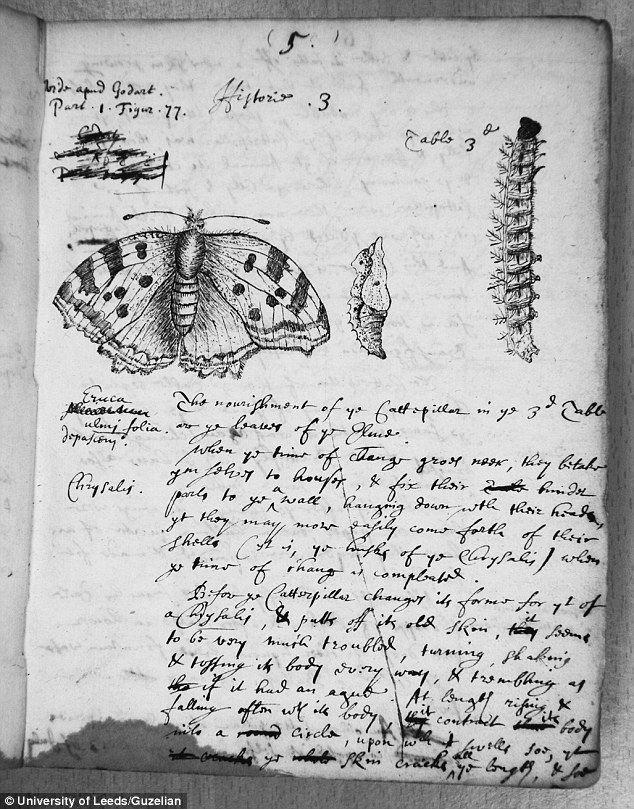 (5.)
Vide apud Godart.
Part. 1. Figur. 77.
Historie .3.
Table 3d
Eruca
ulmj folia.
depascens.
The nourishment of ye Catterpillar in ye 3d Table
are ye leaves of ye Elme.
When ye time of change groes neer, they betake
ym selves to houses, & fix their hinder
parts to ye wall, hanging down with their heads,
yt they may more easily come forth of their
shells (yt is, ye husks of ye Chrysalis) when
ye time of change is compleated.
Chrysalis.
Before ye Catterpillar changes its forme for yt of
a Chrysalis, & putts off its old skin, it seems
to be very much troubled, turning, shaking
& tossing its body every way, & trembling as
if it had an ague
At length rising, &
falling often wth its body, contract its body
into a circle, upon wch it swells soe, yt
ye skin cracks all ye length, & soe
© University of Leeds/Guzelian